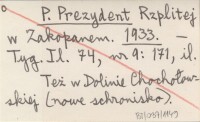 P. Prezydent Rzplitej
w Zakopanem. 1933. —
Tyg. Il. 74, nr 9: 171, il.
Też w Dolinie Chochołow-
skiej (nowe schronisko).